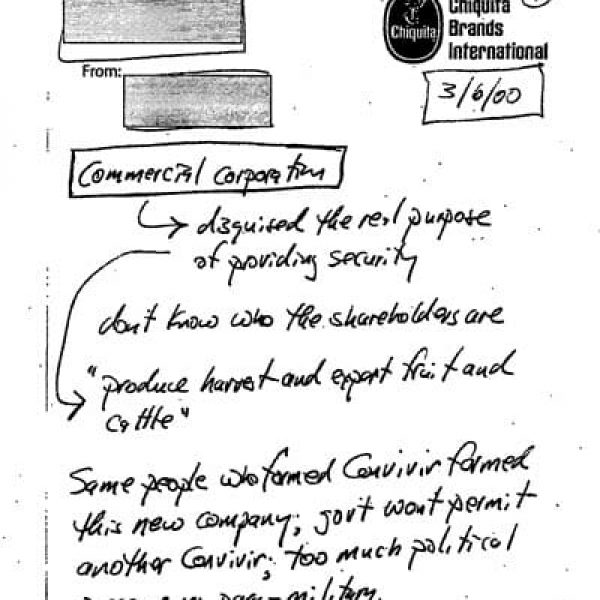 Chiquita
Brands
International
Chiquita
From:
3/6/00
Commercial Corporation
disguised the real purpose
of providing security
don't know who the shareholders are
"produce harvest and export fruit and
cattle"
Same people who formed Convivir formed
this new company; gov't won't permit
another Convivir; too much political
para-military.